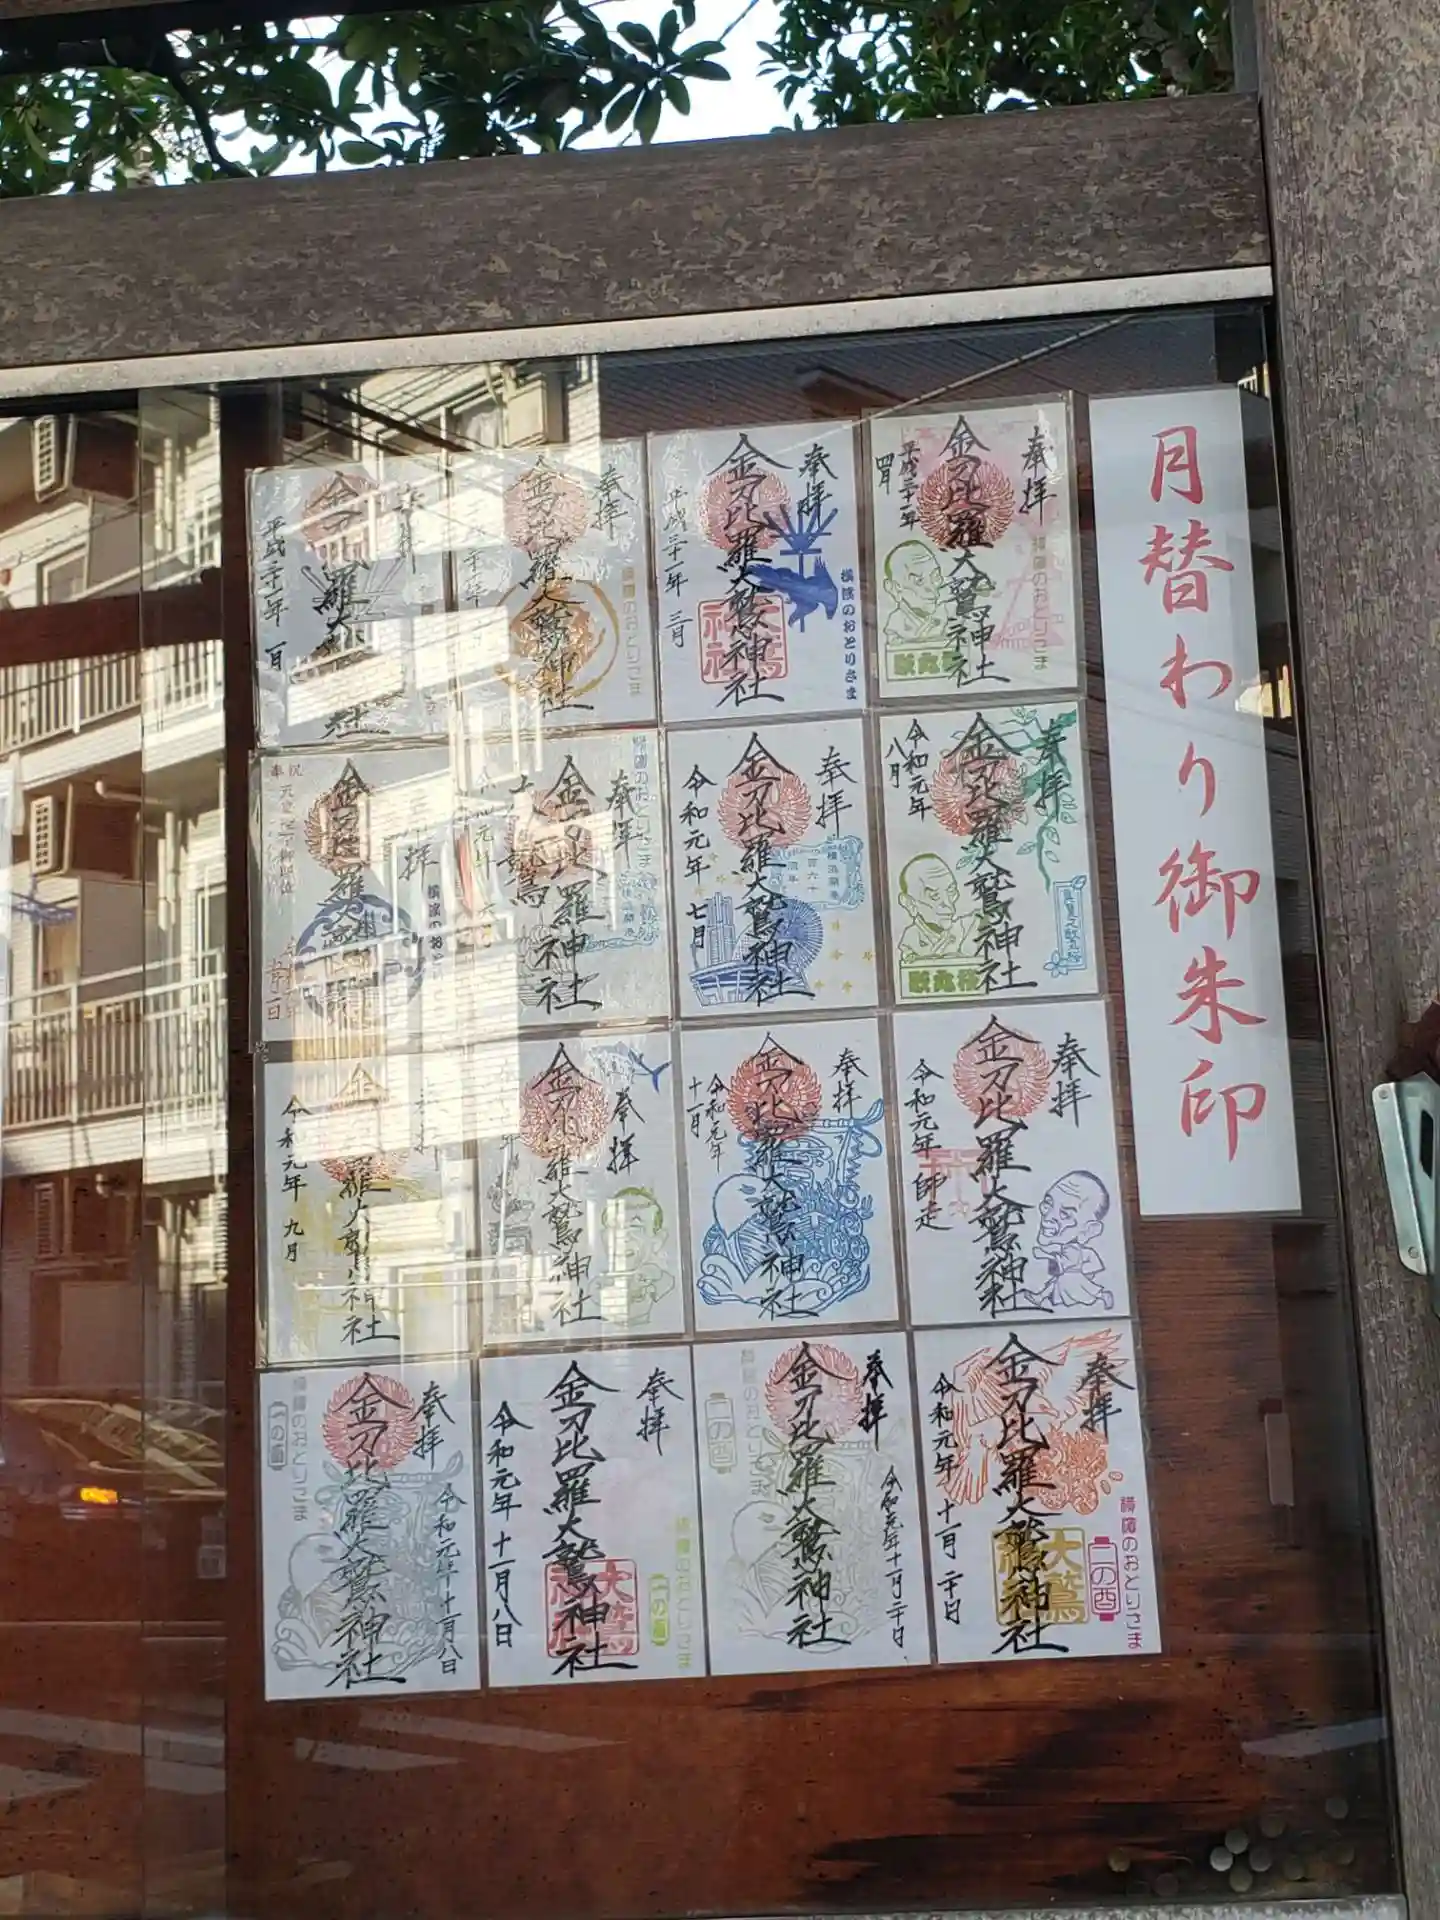 月替わり御朱印
奉拝
金刀比羅大鷲神社
平成三十一年
四月
横濱のおとりさま
歌丸桜
奉拝
金刀比羅大鷲神社
平成三十一年 三月
横濱のおとりさま
大鷲
神社
奉拝
金刀比羅大鷲神社
横濱のおとりさま
平成三十一年
奉拝
金刀比羅大鷲神社
令和元年
八月
奉拝
金刀比羅大鷲神社
令和元年 七月
奉拝
金刀比羅
大鷲
神社
横濱のおとりさま
奉祝
拝
金刀比羅大鷲神社
横濱のおと
奉拝
金刀比羅大鷲神社
令和元年師走
奉拝
金刀比羅大鷲神社
令和元年
十一月
奉拝
金刀比羅大鷲神社
令和元年 九月
奉拝
金刀比羅大鷲神社
令和元年 十一月 二十日
横濱のおとりさま
二の酉
大鷲
奉拝
金刀比羅大鷲神社
令和元年十一月二十日
横濱のおとりさま
二の酉
奉拝
金刀比羅大鷲神社
令和元年 十一月八日
横濱のおとりさま
一の酉
大鷲
奉拝
金刀比羅大鷲神社
令和元年十一月八日
横濱のおとりさま
一の酉